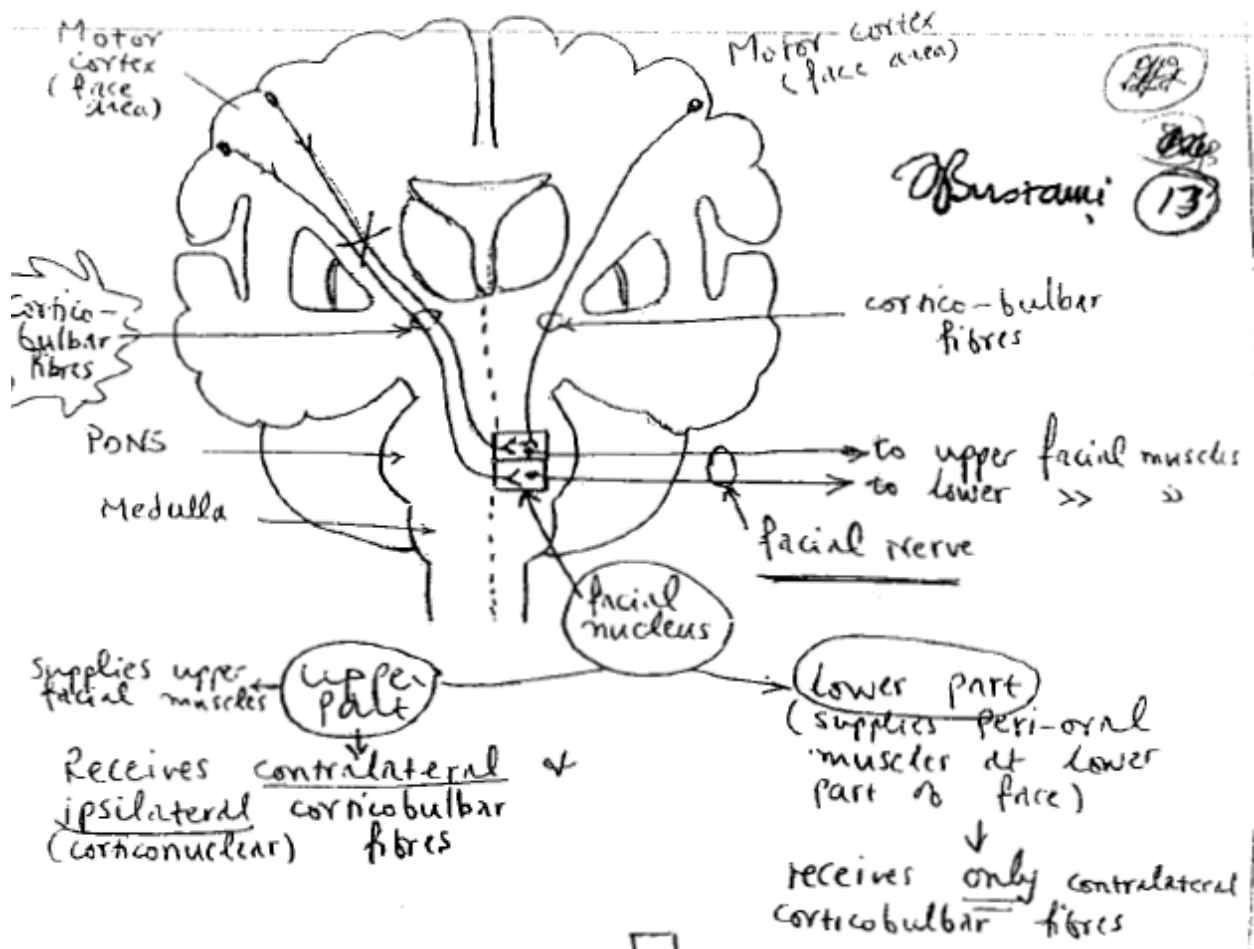 Motor
cortex
(face
area)
Motor cortex
(face area)
Bustami
13
Cortico-
bulbar
fibres
cortico-bulbar
fibres
PONS
Medulla
to upper facial muscles
to lower >> »
facial nerve
facial
nucleus
supplies upper
facial muscles
upper
part
Receives contralateral &
ipsilateral corticobulbar
(corticonuclear) fibres
Lower part
(supplies peri-oral
muscles at lower
part of face)
receives only contralateral
corticobulbar fibres